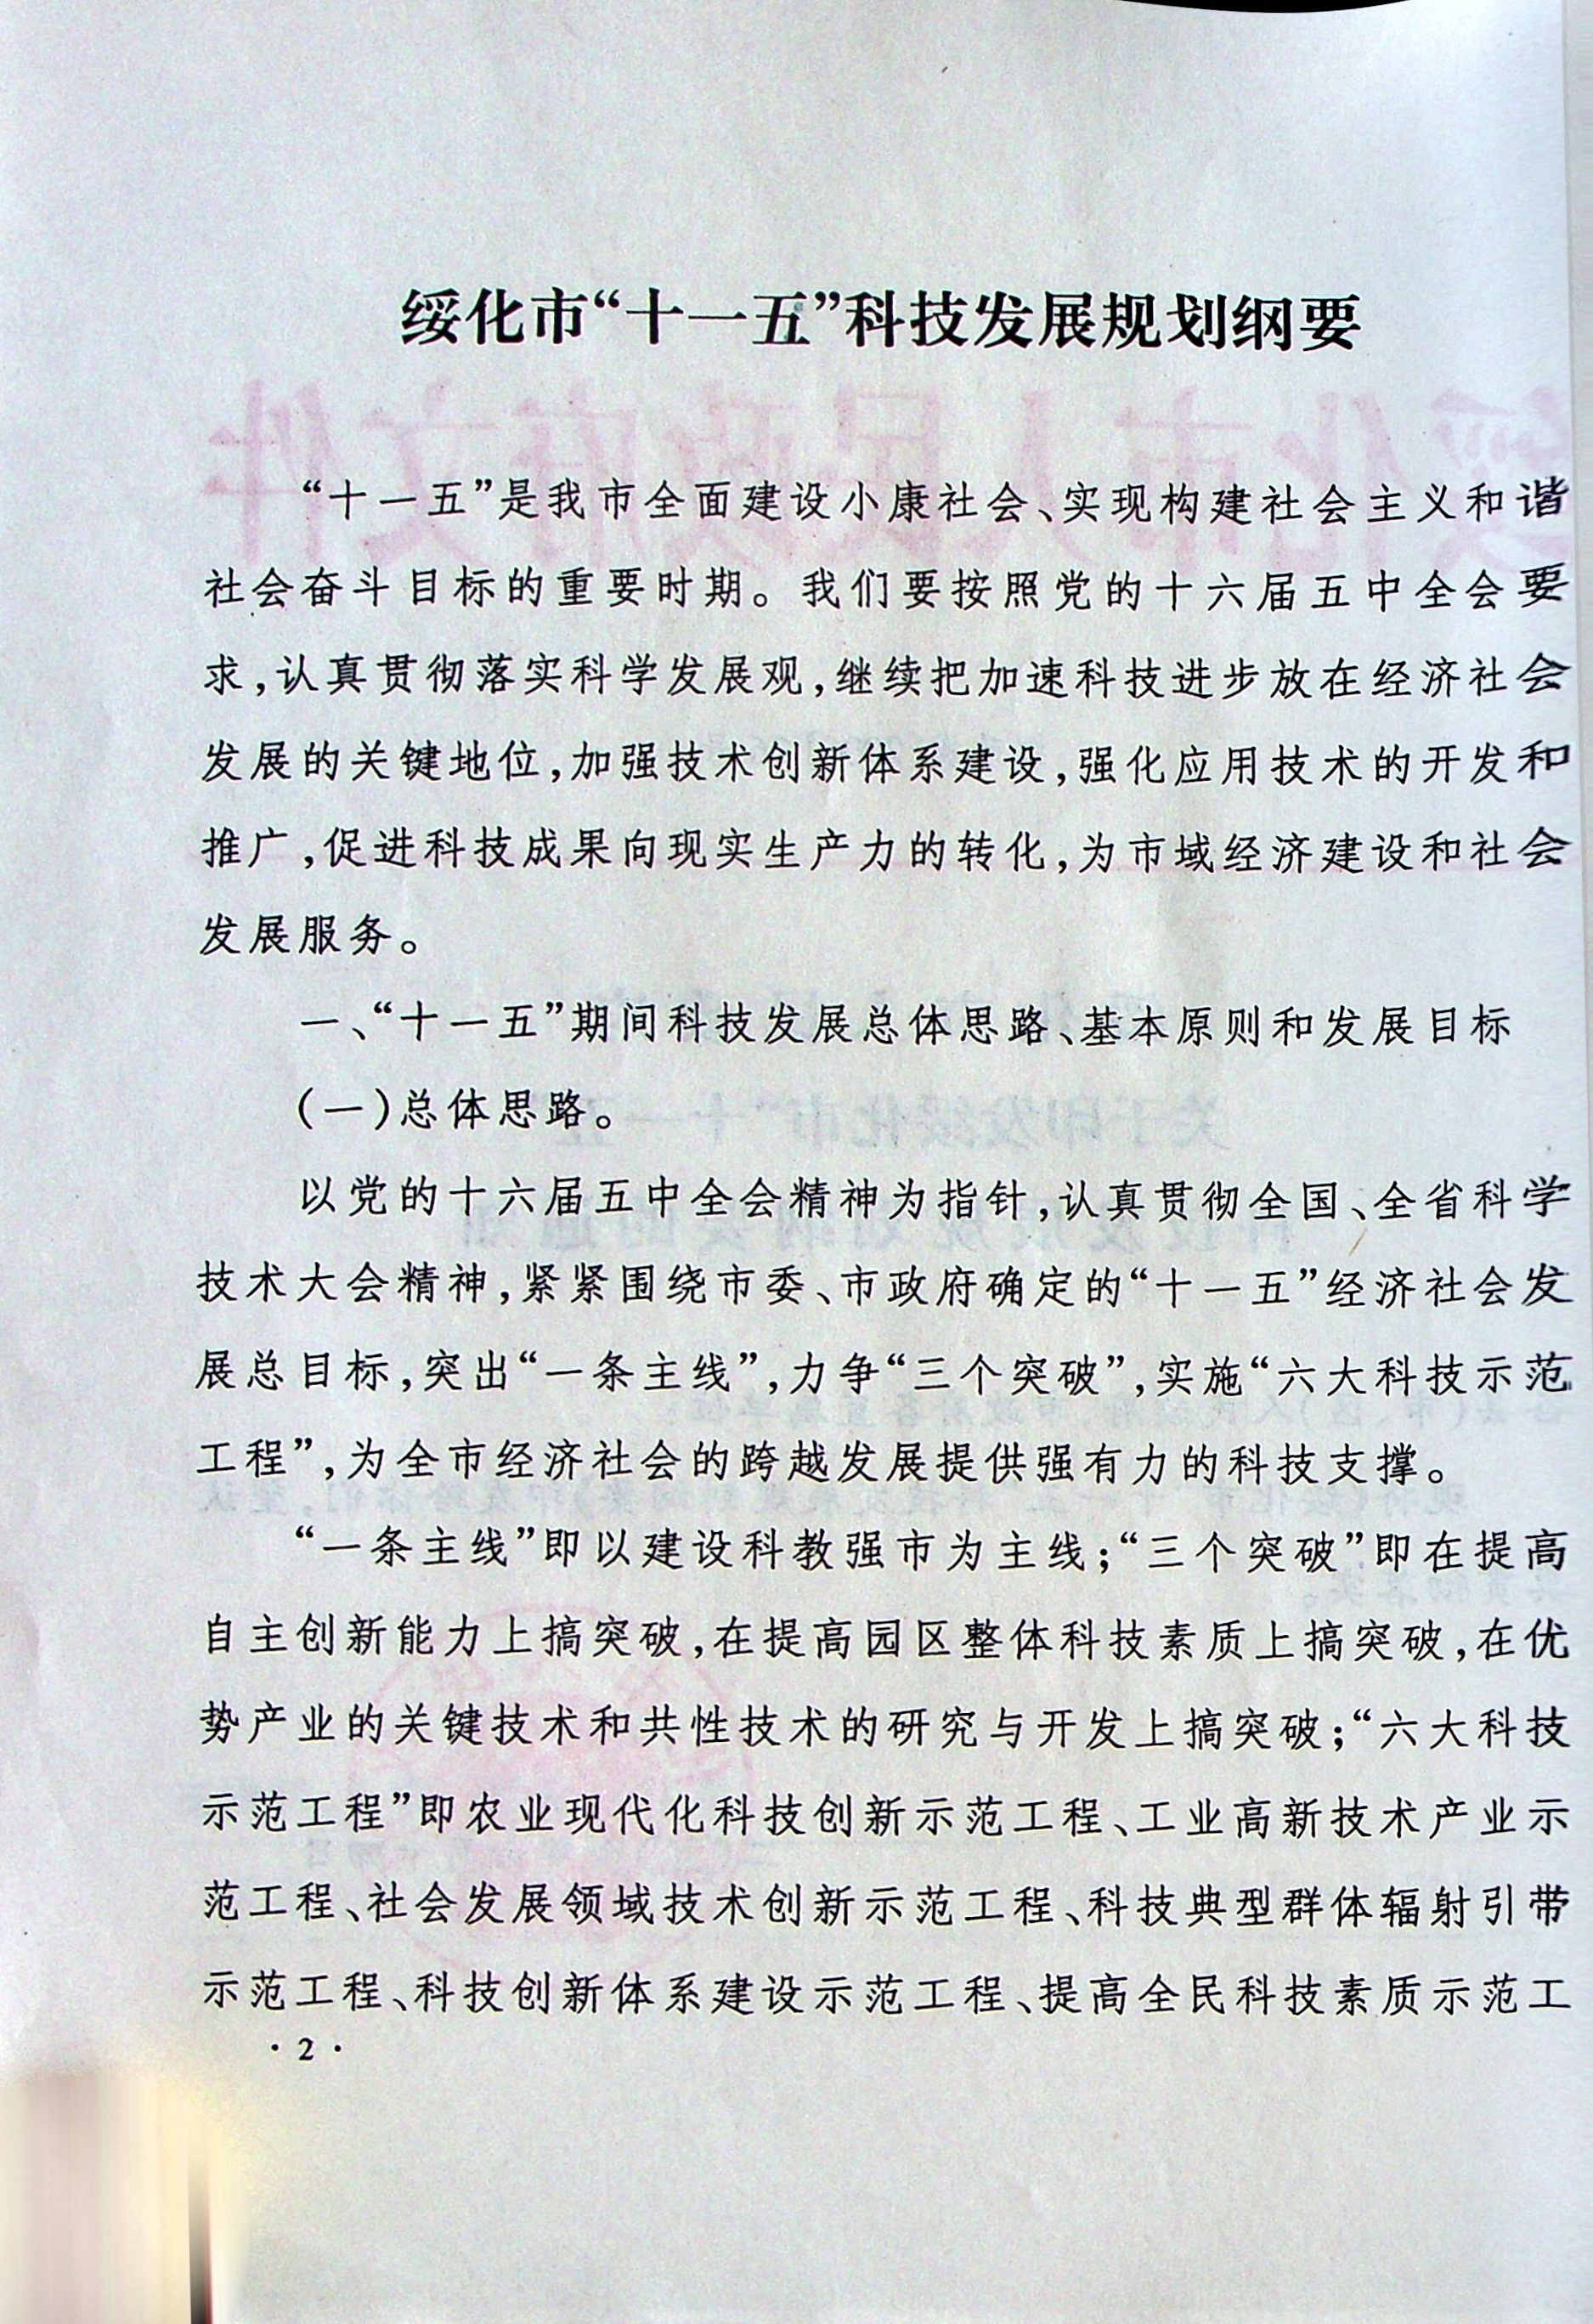 绥化市“十一五”科技发展规划纲要
“十一五”是我市全面建设小康社会、实现构建社会主义和谐
社会奋斗目标的重要时期。我们要按照党的十六届五中全会要
求,认真贯彻落实科学发展观,继续把加速科技进步放在经济社会
发展的关键地位,加强技术创新体系建设,强化应用技术的开发和
推广,促进科技成果向现实生产力的转化,为市域经济建设和社会
发展服务。
一、“十一五”期间科技发展总体思路、基本原则和发展目标
(一)总体思路。
以党的十六届五中全会精神为指针,认真贯彻全国、全省科学
技术大会精神,紧紧围绕市委、市政府确定的“十一五”经济社会发
展总目标,突出“一条主线”,力争“三个突破”,实施“六大科技示范
工程”,为全市经济社会的跨越发展提供强有力的科技支撑。
“一条主线”即以建设科教强市为主线;“三个突破”即在提高
自主创新能力上搞突破,在提高园区整体科技素质上搞突破,在优
势产业的关键技术和共性技术的研究与开发上搞突破;“六大科技
示范工程”即农业现代化科技创新示范工程、工业高新技术产业示
范工程、社会发展领域技术创新示范工程、科技典型群体辐射引带
示范工程、科技创新体系建设示范工程、提高全民科技素质示范工
·2·